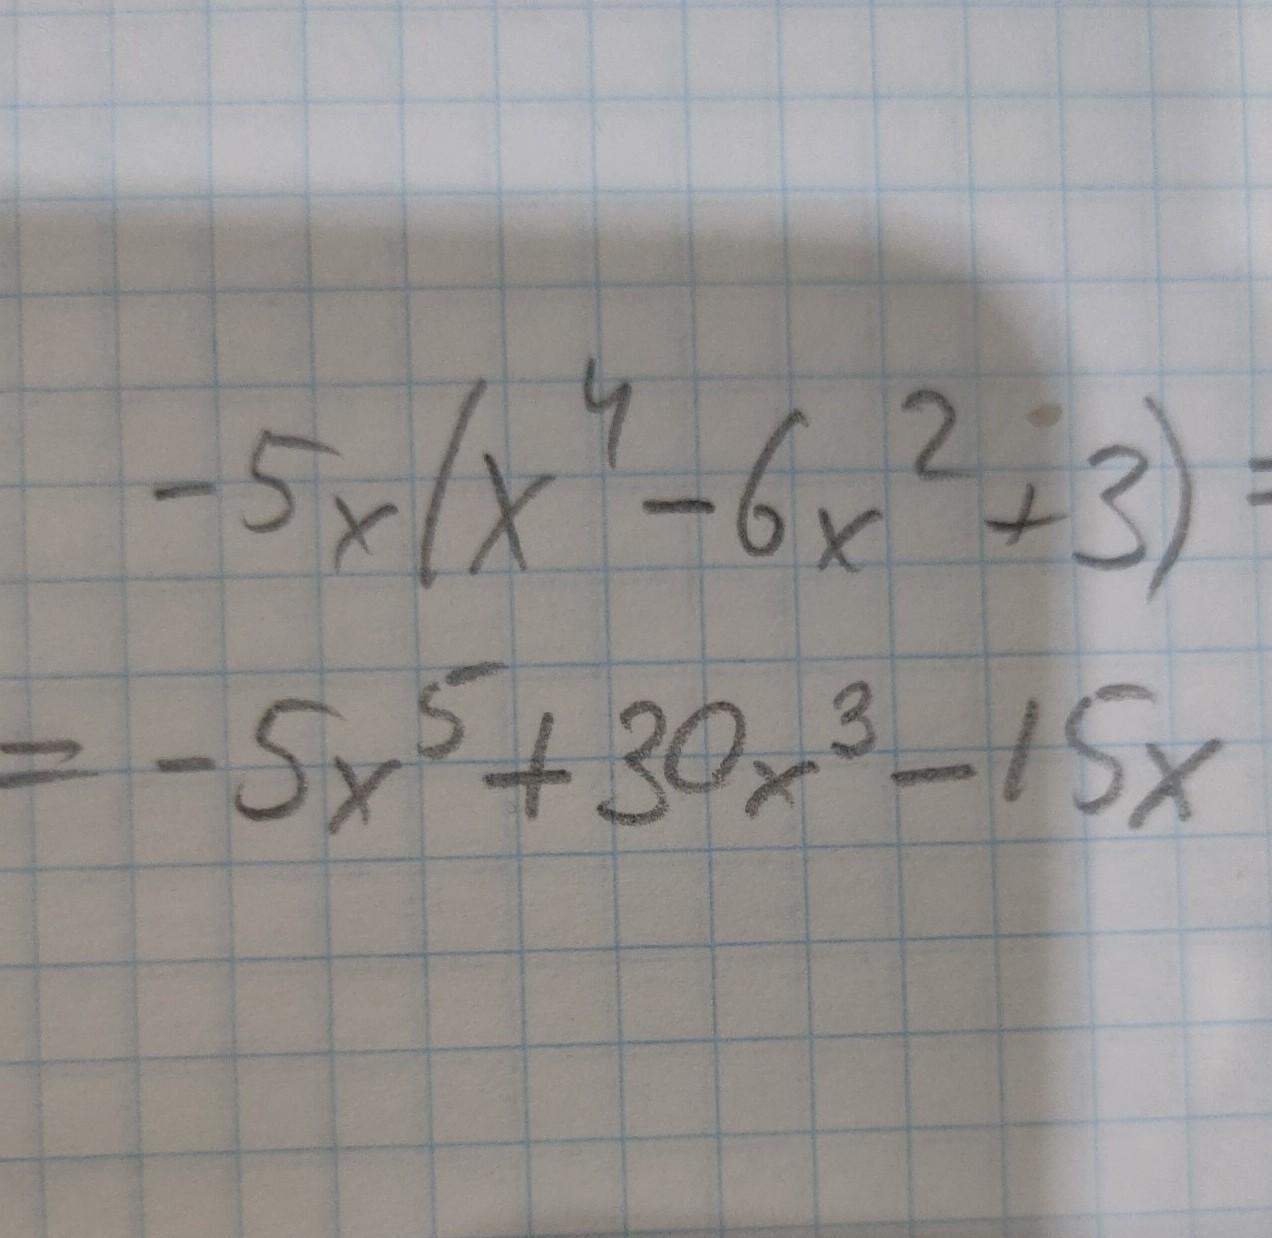 -5x(x⁴-6x²+3)=
=-5x⁵+30x³-15x